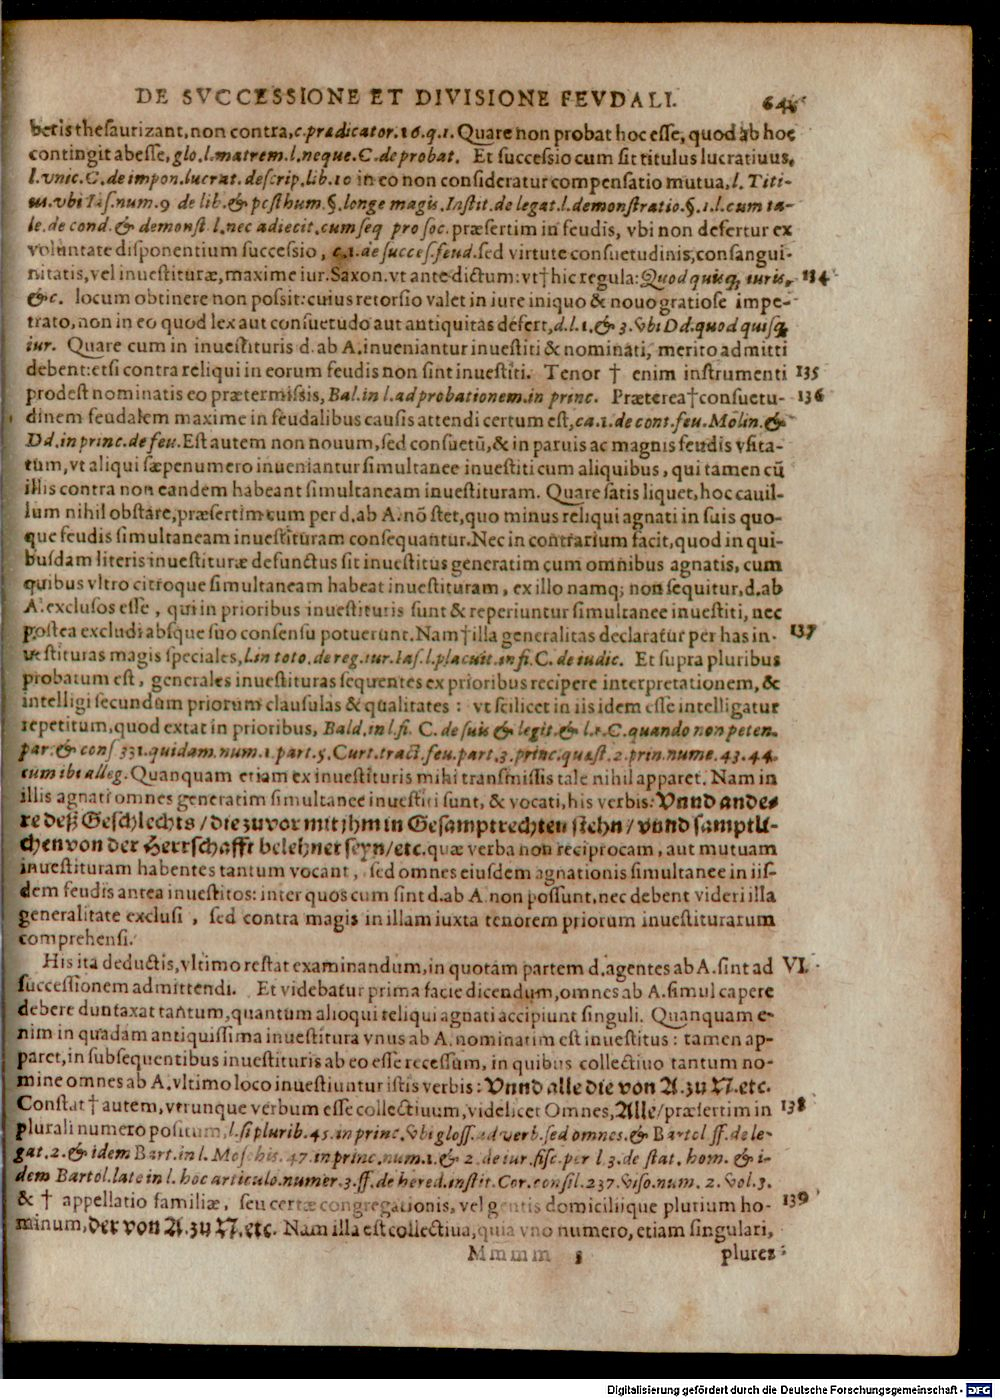 DE SVCCESSIONE ET DIVISIONE FEVDALI. 
beris thesaurizant, non contra, c. prædicator. 16. q. 1. Quare non probat hoc esse, quod ab hoc
contingit abesse, glo. l. matrem. l. neque. C. de probat. Et successio cum sit titulus lucratiuus,
l. vnic. C. de impon. lucrat. descrip. lib. 10 in eo non consideratur compensatio mutua, l. Titi-
us. vbi Ias. num. 9 de lib. & posthum. §. longe magis. Instit. de legat. l. demonstratio. §. 1. l. cum ta-
le. de cond. & demonst l. nec adiecit. cum seq pro soc. præsertim in feudis, vbi non defertur ex
voluntate disponentium successio, c. 1. de succes. feud. sed virtute consuetudinis, consangui-
nitatis, vel inuestituræ, maxime iur. Saxon. vt ante dictum: vt † hic regula: Quod quisq; iuris, 134
&c. locum obtinere non possit: cuius retorsio valet in iure iniquo & nouo gratiose impe-
trato, non in eo quod lex aut consuetudo aut antiquitas defert, d. l. 1. & 3. vbi Dd. quod quisq;
iur. Quare cum in inuestituris d. ab A. inueniantur inuestiti & nominati, merito admitti
debent: etsi contra reliqui in eorum feudis non sint inuestiti. Tenor † enim instrumenti 135
prodest nominatis eo prætermissis, Bal. in l. ad probationem. in princ. Præterea † consuetu- 136
dinem feudalem maxime in feudalibus causis attendi certum est, ca. 1. de cont. feu. Molin. &
Dd. in princ. de feu. Est autem non nouum, sed consuetũ, & in paruis ac magnis feudis vsita-
tum, vt aliqui sæpenumero inueniantur simultanee inuestiti cum aliquibus, qui tamen cũ
illis contra non eandem habeant simultaneam inuestituram. Quare satis liquet, hoc cauil-
lum nihil obstare, præsertim cum per d. ab A. nõ stet, quo minus reliqui agnati in suis quo-
que feudis simultaneam inuestituram consequantur. Nec in contrarium facit, quod in qui-
busdam literis inuestituræ defunctus sit inuestitus generatim cum omnibus agnatis, cum
quibus vltro citroque simultaneam habeat inuestituram, ex illo namq; non sequitur, d. ab
A. exclusos esse, qui in prioribus inuestituris sunt & reperiuntur simultanee inuestiti, nec
postea excludi absque suo consensu potuerunt. Nam † illa generalitas declaratur per has in- 137
vestituras magis speciales, l. in toto. de reg. iur. Ias. l. placuit. in fi. C. de iudic. Et supra pluribus
probatum est, generales inuestituras sequentes ex prioribus recipere interpretationem, &
intelligi secundum priorum clausulas & qualitates: vt scilicet in iisdem esse intelligatur
repetitum, quod extat in prioribus, Bald. in l. fi. C. de suis & legit. & l. 1. C. quando non peten.
par. & cons 331. quidam. num. 1 part. 5. Curt. tract. feu. part. 3. princ. quæst. 2. prin. nume. 43. 44.
cum ibi alleg. Quanquam etiam ex inuestituris mihi transmissis tale nihil apparet. Nam in
illis agnati omnes generatim simultanee inuestiti sunt, & vocati, his verbis: Vnnd ande-
re deß Geschlechts / die zuvor mit jhm in Gesamptrechten stehn / vnnd samptli-
chen von der Herrschafft belehnet seyn / etc. quæ verba non reciprocam, aut mutuam
inuestituram habentes tantum vocant, sed omnes eiusdem agnationis simultanee in iis-
dem feudis antea inuestitos: inter quos cum sint d. ab A. non possunt, nec debent videri illa
generalitate exclusi, sed contra magis in illam iuxta tenorem priorum inuestiturarum
comprehensi.
His ita deductis, vltimo restat examinandum, in quotam partem d. agentes ab A. sint ad VI.
successionem admittendi. Et videbatur prima facie dicendum, omnes ab A. simul capere
debere duntaxat tantum, quantum alioqui reliqui agnati accipiunt singuli. Quanquam e-
nim in quadam antiquissima inuestitura vnus ab A. nominatim est inuestitus: tamen ap-
paret, in subsequentibus inuestituris ab eo esse recessum, in quibus collectiuo tantum no-
mine omnes ab A. vltimo loco inuestiuntur istis verbis: Vnnd alle die von A. zu N. etc.
Constat † autem, vtrunque verbum esse collectiuum, videlicet Omnes, Alle / præsertim in 138
plurali numero positum, l. si plurib. 45. in princ. vbi gloss. ad verb. sed omnes. & Bartol ff. de le-
gat. 2. & idem Bart. in l. Moschis. 47. in princ. num. 1. & 2. de iur. fisc. per l 3. de stat. hom. & i-
dem Bartol. late in l. hoc articulo. numer. 3. ff. de hered. instit. Cor. consil. 237. viso. num. 2. vol. 3.
& † appellatio familiæ, seu certæ congregationis, vel gentis domiciliique plurium ho- 139
minum, der von A. zu N. etc. Nam illa est collectiua, quia vno numero, etiam singulari,
Mmmm plures
Digitalisierung gefördert durch die Deutsche Forschungsgemeinschaft - DFG